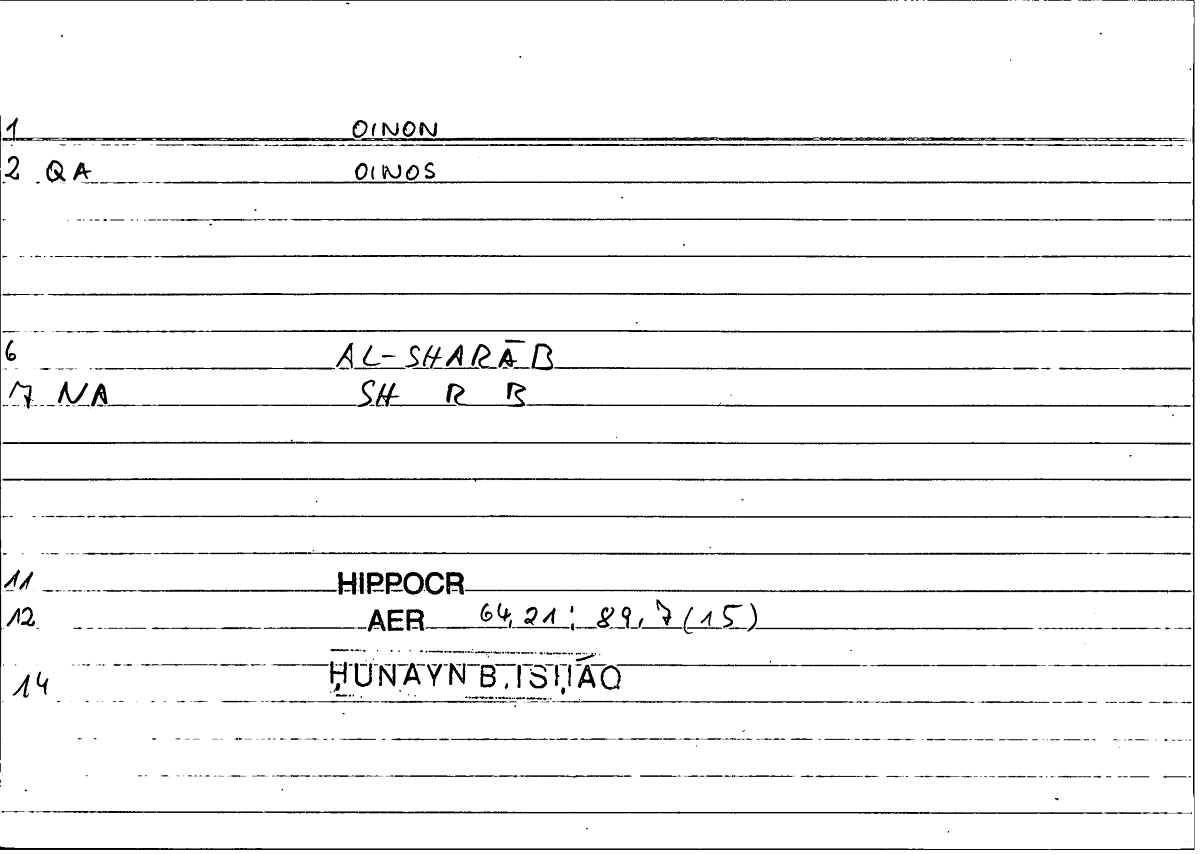 1 OINON
2 QA OINOS
6 AL-SHARĀB
7 NA SH R B
11 HIPPOCR
12 AER 64,21; 89,7(15)
14 ḤUNAYN B. ISḤĀQ